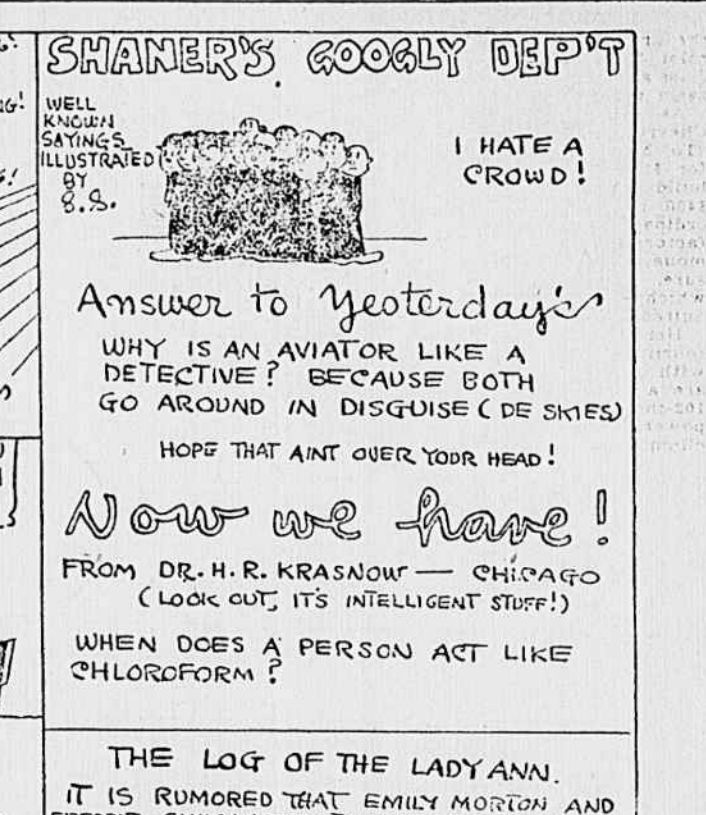 SHANER'S GOOGLY DEP'T
WELL
KNOWN
SAYINGS
ILLUSTRATED
BY
S.S.
I HATE A
CROWD!
Answer to Yesterday's
WHY IS AN AVIATOR LIKE A
DETECTIVE? BECAUSE BOTH
GO AROUND IN DISGUISE (DE SKIES)
HOPE THAT AINT OVER YOUR HEAD!
Now we have!
FROM DR. H. R. KRASNOW — CHICAGO
(LOOK OUT, IT'S INTELLIGENT STUFF!)
WHEN DOES A PERSON ACT LIKE
CHLOROFORM?
THE LOG OF THE LADY ANN.
IT IS RUMORED THAT EMILY MORTON AND